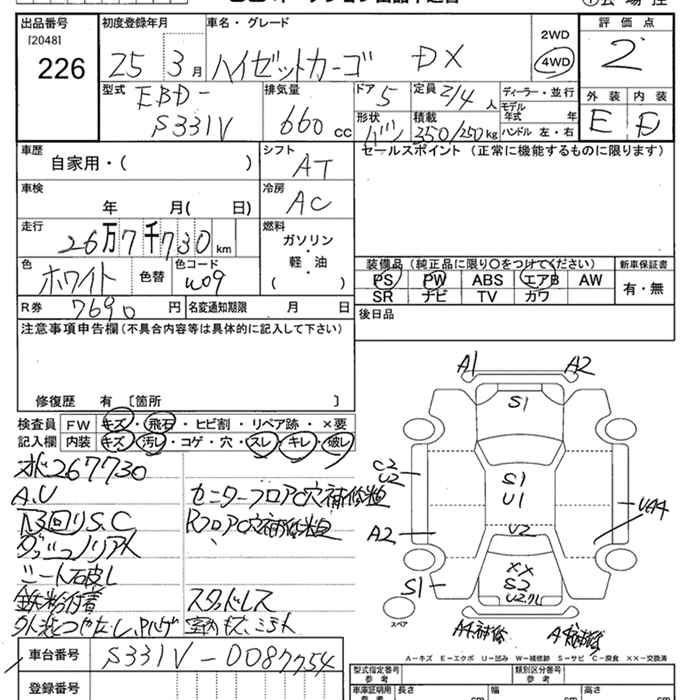 出品番号
[2048]
226
初度登録年月
25 3月
車名・グレード
ハイゼットカーゴ DX
2WD
4WD
評価点
2
外装 内装
E D
型式
EBD-
S331V
排気量
660 cc
ドア 5
形状 バン
定員 2/4 人
積載
350/250kg
ディーラー・並行
モデル
年式 年
ハンドル 左・右
車歴
自家用・( )
シフト
AT
セールスポイント (正常に機能するものに限ります)
車検
年 月( 日)
冷房
AC
走行
26万7千730km
燃料
ガソリン
・
軽・油
・
( )
色
ホワイト
色替
色コード
W09
装備品 (純正品に限り○をつけてください)
PS PW ABS エアB AW
SR ナビ TV カワ
新車保証書
有・無
R券
7690 円
名変通知期限 月 日
後日品
注意事項申告欄(不具合内容等は具体的に記入して下さい)
修復歴 有 [箇所 ]
検査員
記入欄
FW キズ・飛石・ヒビ割・リペア跡・×要
内装 キズ・汚レ・コゲ・穴・スレ・キレ・破レ
267730
A.U
下回りS.C
シート
鉄粉付着
センターフロアC穴補修
RフロアC穴補修
スタッドレス
A1
A2
S1
C2
U2
S1
U1
A2
U2
XX
S2
S1
スペア
A-キズ E-エクボ U-凹み W-補修跡 S-サビ C-腐食 ××-交換済
車台番号
S331V-0087754
登録番号
型式指定番号
類別区分番号
車庫証明用
参考
長さ cm
幅 cm
高さ cm